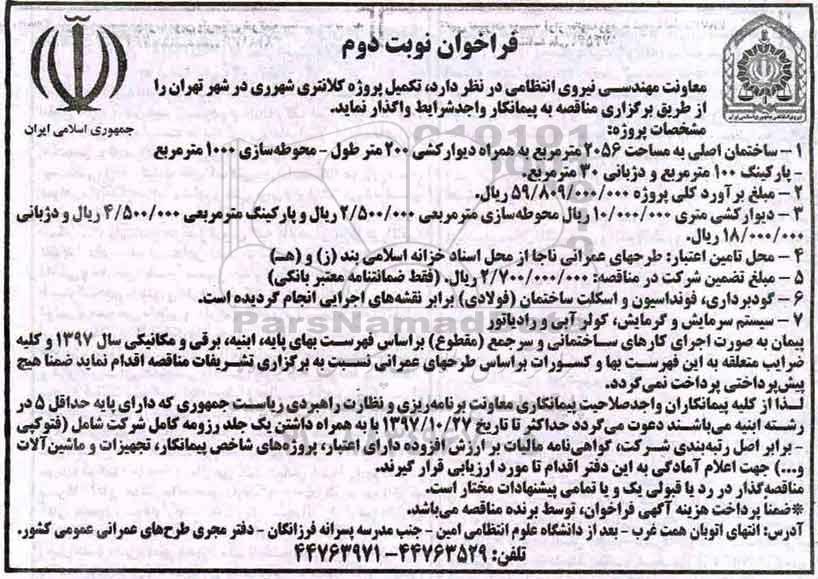 فراخوان نوبت دوم
جمهوری اسلامی ایران
معاونت مهندسی نیروی انتظامی در نظر دارد، تکمیل پروژه کلانتری شهرری در شهر تهران را
از طریق برگزاری مناقصه به پیمانکار واجدشرایط واگذار نماید.
مشخصات پروژه:
۱ – ساختمان اصلی به مساحت ۲۰۵۶ مترمربع به همراه دیوارکشی ۲۰۰ متر طول – محوطه‌سازی ۱۰۰۰ مترمربع
- پارکینگ ۱۰۰ مترمربع و دژبانی ۳۰ مترمربع.
۲ – مبلغ برآورد کلی پروژه ۵۹/۸۰۹/۰۰۰/۰۰۰ ریال.
۳ – دیوارکشی متری ۱۰/۰۰۰/۰۰۰ ریال محوطه‌سازی مترمربعی ۲/۵۰۰/۰۰۰ ریال و پارکینگ مترمربعی ۴/۵۰۰/۰۰۰ ریال و دژبانی
۱۸/۰۰۰/۰۰۰ ریال.
۴ – محل تامین اعتبار: طرحهای عمرانی ناجا از محل اسناد خزانه اسلامی بند (ز) و (هـ)
۵ – مبلغ تضمین شرکت در مناقصه: ۲/۷۰۰/۰۰۰/۰۰۰ ریال. (فقط ضمانتنامه معتبر بانکی)
۶ – گودبرداری، فونداسیون و اسکلت ساختمان (فولادی) برابر نقشه‌های اجرایی انجام گردیده است.
۷ – سیستم سرمایش و گرمایش، کولر آبی و رادیاتور
ParsNamadData
پیمان به صورت اجرای کارهای ساختمانی و سرجمع (مقطوع) براساس فهرست بهای پایه، ابنیه، برقی و مکانیکی سال ۱۳۹۷ و کلیه
ضرایب متعلقه به این فهرست بها و کسورات براساس طرحهای عمرانی نسبت به برگزاری تشریفات مناقصه اقدام نماید ضمنا هیچ
پیش‌پرداختی پرداخت نمی‌گردد.
لذا از کلیه پیمانکاران واجدصلاحیت پیمانکاری معاونت برنامه‌ریزی و نظارت راهبردی ریاست جمهوری که دارای پایه حداقل ۵ در
رشته ابنیه می‌باشند دعوت می‌گردد حداکثر تا تاریخ ۱۳۹۷/۱۰/۲۷ با به همراه داشتن یک جلد رزومه کامل شرکت شامل (فتوکپی
- برابر اصل رتبه‌بندی شرکت، گواهی‌نامه مالیات بر ارزش افزوده دارای اعتبار، پروژه‌های شاخص پیمانکار، تجهیزات و ماشین‌آلات
و...) جهت اعلام آمادگی به این دفتر اقدام تا مورد ارزیابی قرار گیرند.
مناقصه‌گذار در رد یا قبولی یک و یا تمامی پیشنهادات مختار است.
*ضمناً پرداخت هزینه آگهی فراخوان، توسط برنده مناقصه می‌باشد.
آدرس: انتهای اتوبان همت غرب – بعد از دانشگاه علوم انتظامی امین – جنب مدرسه پسرانه فرزانگان – دفتر مجری طرح‌های عمرانی عمومی کشور.
تلفن: ۴۴۷۶۳۵۲۹ – ۴۴۷۶۳۹۷۱